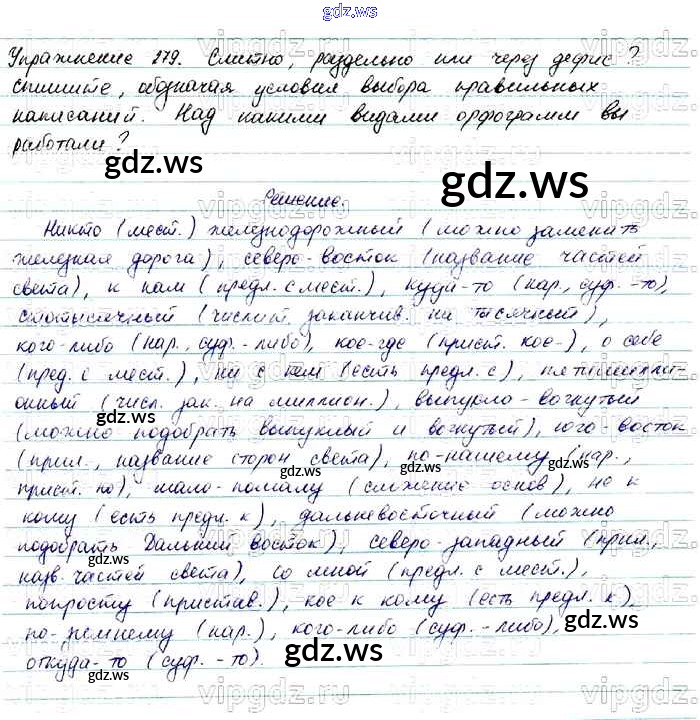 gdz.ws
Упражнение 279. Слитно, раздельно или через дефис?
Спишите, обозначая условия выбора правильных
написаний. Над какими видами орфограмм вы
работали?
gdz.ws
gdz.ws
Решение.
Никто (мест.) железнодорожный (можно заменить
железная дорога), северо-восток (название частей
света), к нам (предл. с мест.), куда-то (нар., суф. -то),
стотысячный (числит. заканчив. на тысячный),
кого-либо (нар., суф. -либо), кое-где (прист. кое-), о себе
(пред. с мест.), ни с кем (есть предл. с), пятимилли-
онный (числ. зак. на миллион.), выпукло-вогнутый
(можно подобрать выпуклый и вогнутый), юго-восток
(прил., название сторон света), по-нашему (нар.,
gdz.ws
gdz.ws
прист. по), мало-помалу (сложение основ), не к
кому (есть предл. к), дальневосточный (можно
подобрать Дальний восток), северо-западный (прил.,
gdz.ws
gdz.ws
назв. частей света), со мной (предл. с мест.),
попросту (пристав.), кое-к кому (есть предл. к),
gdz.ws
по-зимнему (нар.), кого-либо (суф. -либо),
откуда-то (суф. -то).
gdz.ws
gdz.ws